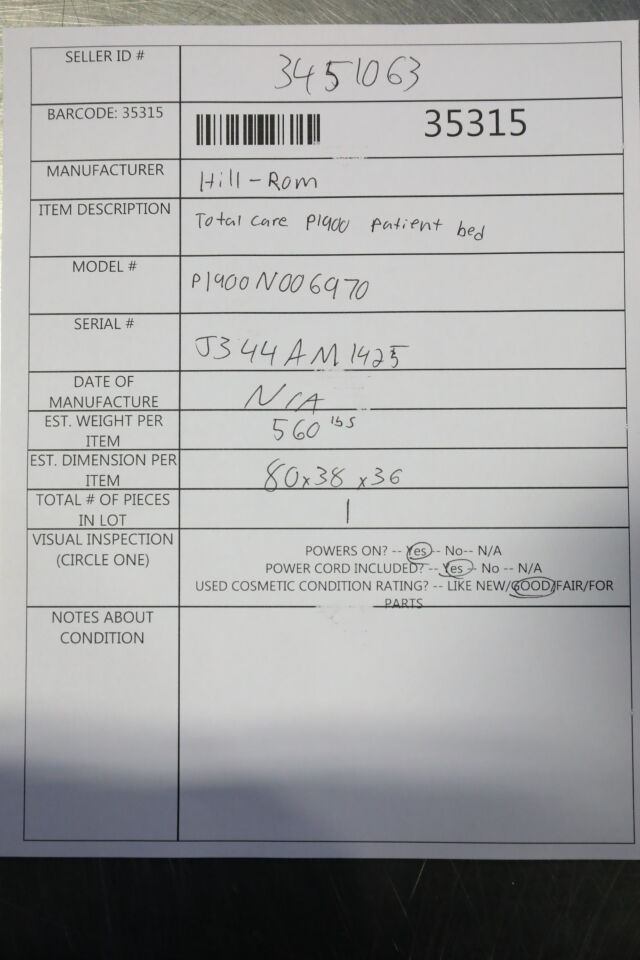 SELLER ID # 3451063
BARCODE: 35315 35315
MANUFACTURER Hill-Rom
ITEM DESCRIPTION Total care P1900 patient bed
MODEL # P1900N006970
SERIAL # J344AM1425
DATE OF
MANUFACTURE N/A
EST. WEIGHT PER
ITEM 560 lbs
EST. DIMENSION PER
ITEM 80x38x36
TOTAL # OF PIECES
IN LOT 1
VISUAL INSPECTION
(CIRCLE ONE)
POWERS ON? -- Yes -- No-- N/A
POWER CORD INCLUDED? -- Yes -- No -- N/A
USED COSMETIC CONDITION RATING? -- LIKE NEW/GOOD/FAIR/FOR
PARTS
NOTES ABOUT
CONDITION